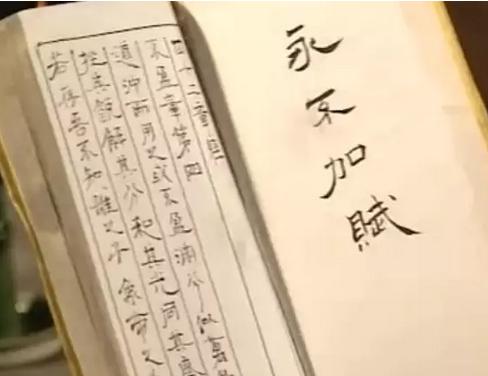 永不加賦
四十二章
不盈章第四
道沖而用之或不盈淵兮似萬
挫其銳解其分和其光同其塵
若存吾不知誰之子象帝之